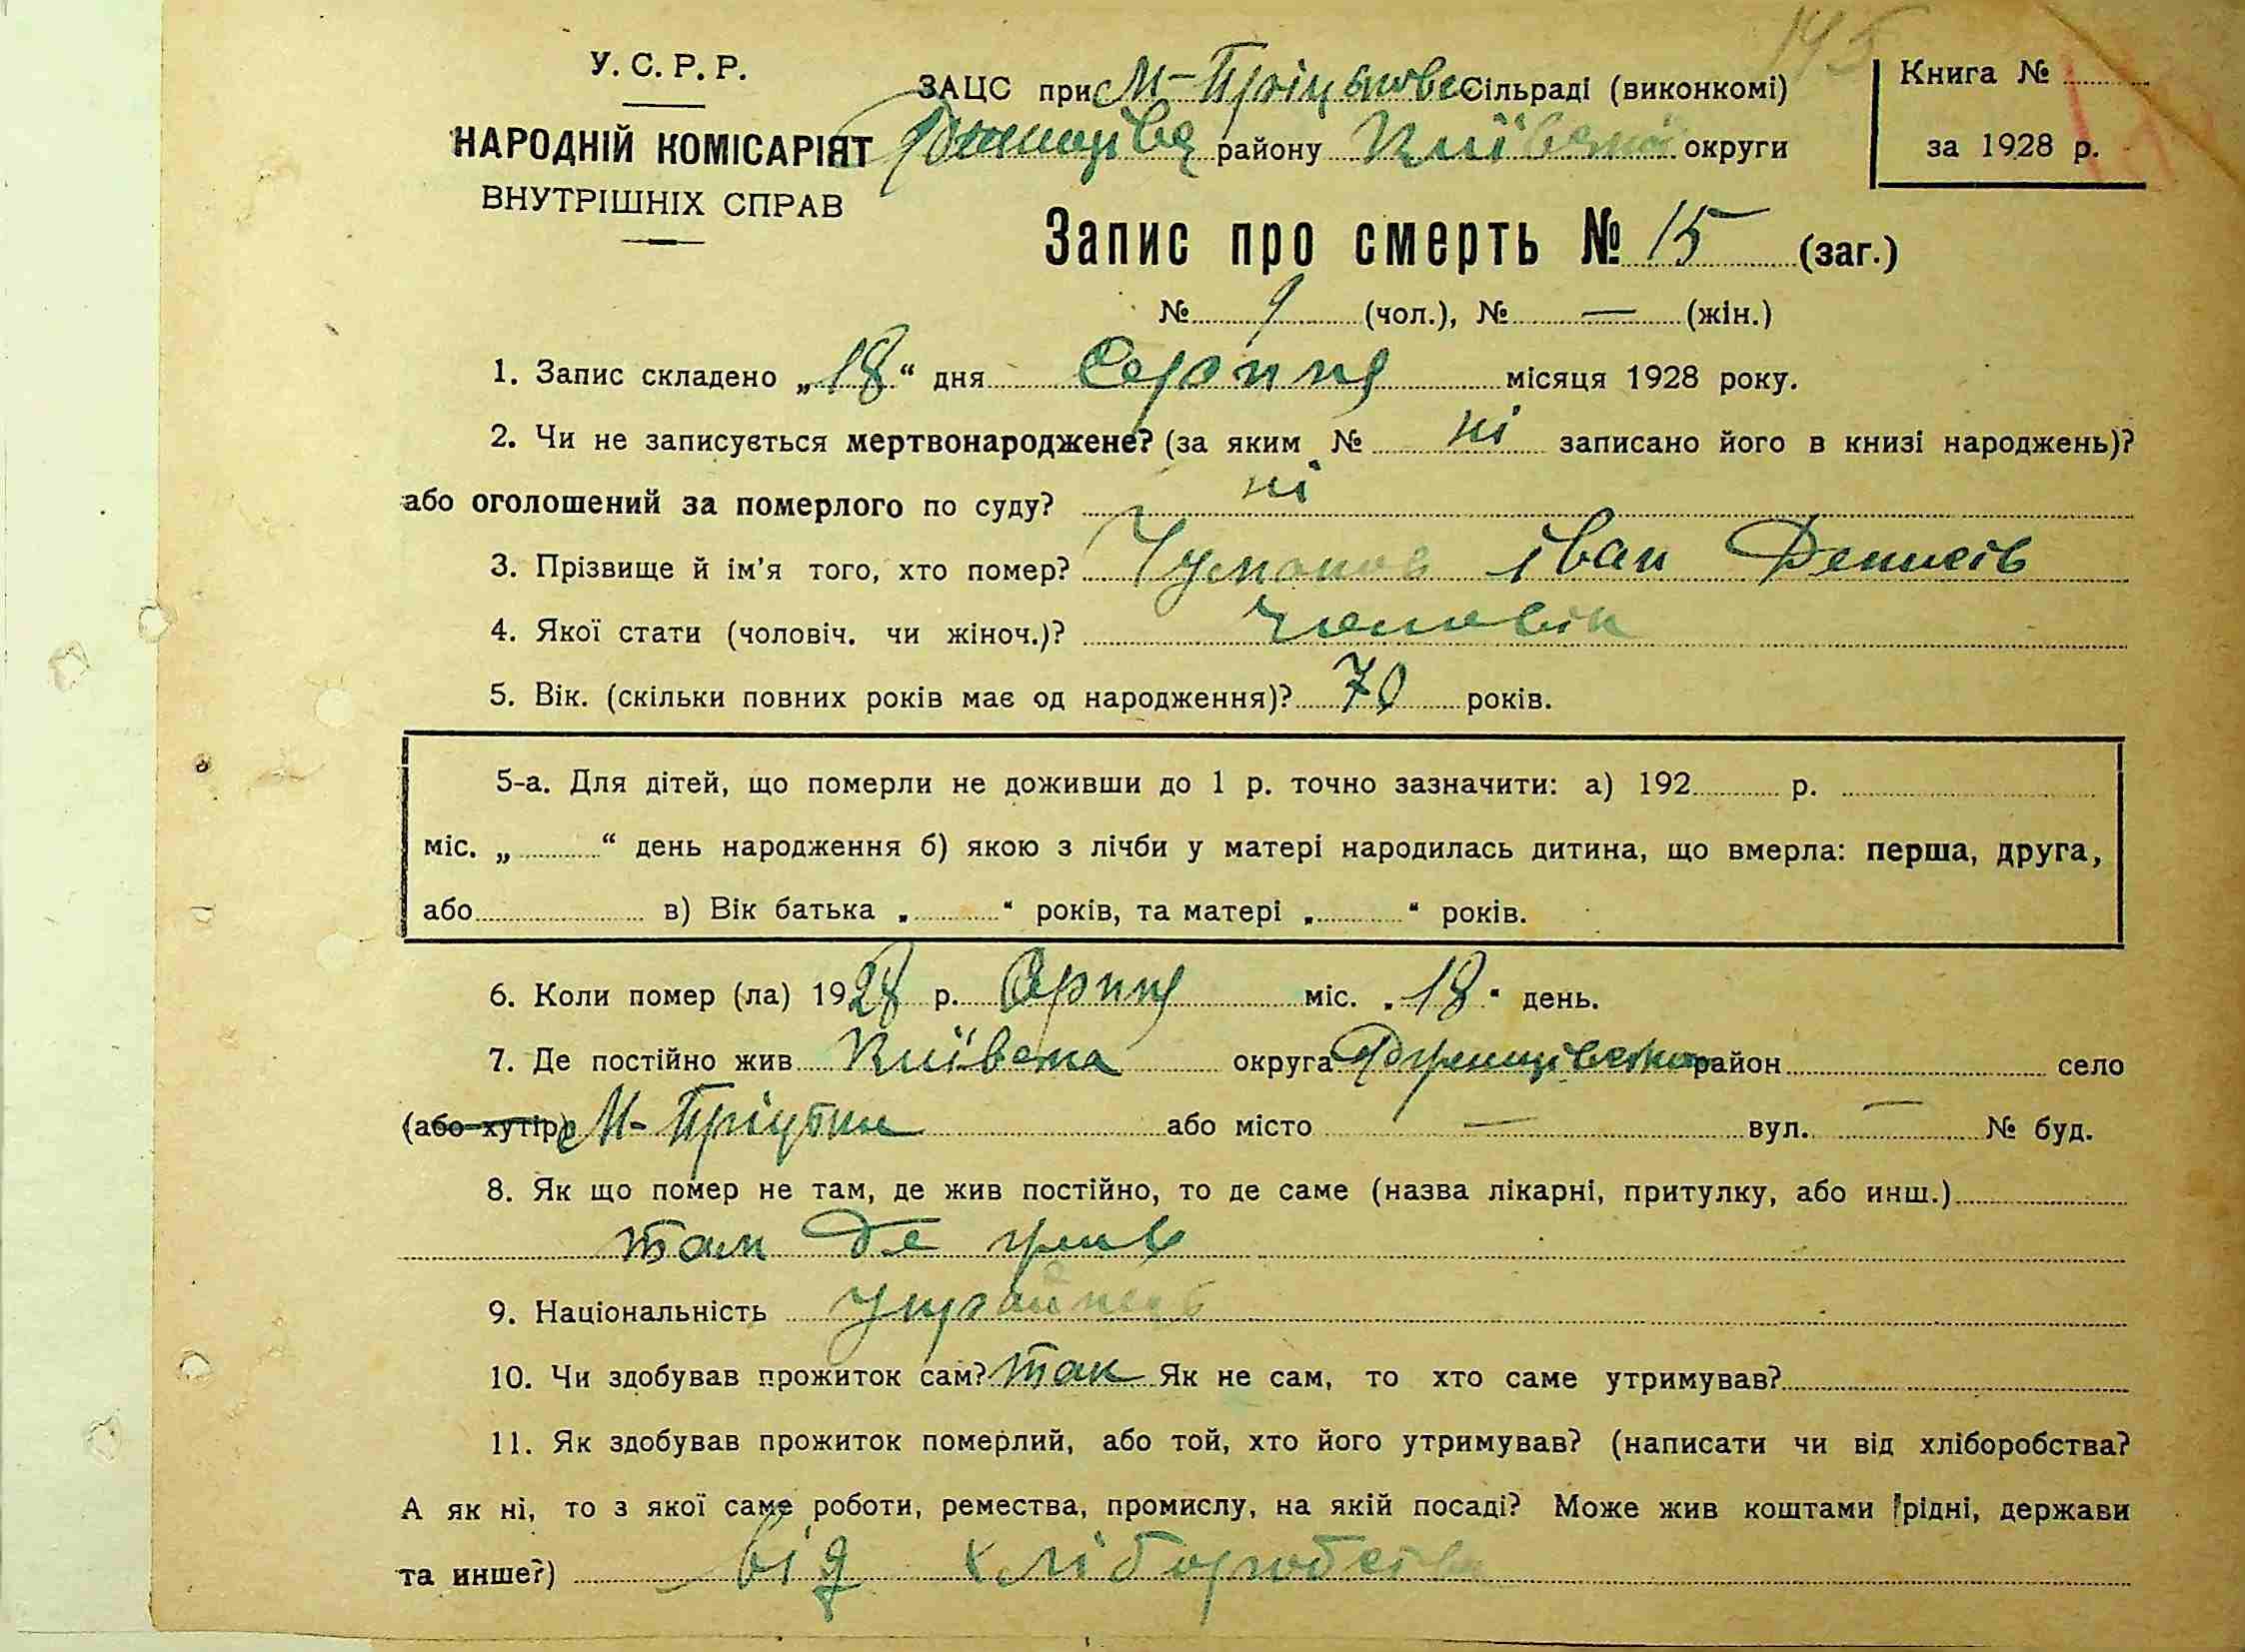 145
У. С. Р. Р.
НАРОДНІЙ КОМІСАРІЯТ
ВНУТРІШНІХ СПРАВ
ЗАЦС при М-Пріцьков сільраді (виконкомі)
району Київської округи
Книга №
за 1928 р.
Запис про смерть № 15 (заг.)
№ 9 (чол.), № — (жін.)
1. Запис складено „18“ дня Серпня місяця 1928 року.
2. Чи не записується мертвонароджене? (за яким № ні записано його в книзі народжень)?
або оголошений за померлого по суду? ні
3. Прізвище й ім’я того, хто помер? Іван Денисів
4. Якої стати (чоловіч. чи жіноч.)? чоловік
5. Вік. (скільки повних років має од народження)? 70 років.
5-а. Для дітей, що померли не доживши до 1 р. точно зазначити: а) 192 р.
міс. „ “ день народження б) якою з лічби у матері народилась дитина, що вмерла: перша, друга,
або в) Вік батька „ “ років, та матері „ “ років.
6. Коли помер (ла) 1928 р. Серпня міс. „18“ день.
7. Де постійно жив Київська округа район село
(або хутір) с М-Пріцьки або місто — вул. — № буд.
8. Як що помер не там, де жив постійно, то де саме (назва лікарні, притулку, або инш.)
там де жив
9. Національність Українець
10. Чи здобував прожиток сам? так Як не сам, то хто саме утримував?
11. Як здобував прожиток померлий, або той, хто його утримував? (написати чи від хліборобства?
А як ні, то з якої саме роботи, ремества, промислу, на якій посаді? Може жив коштами рідні, держави
та инше?) від хліборобства